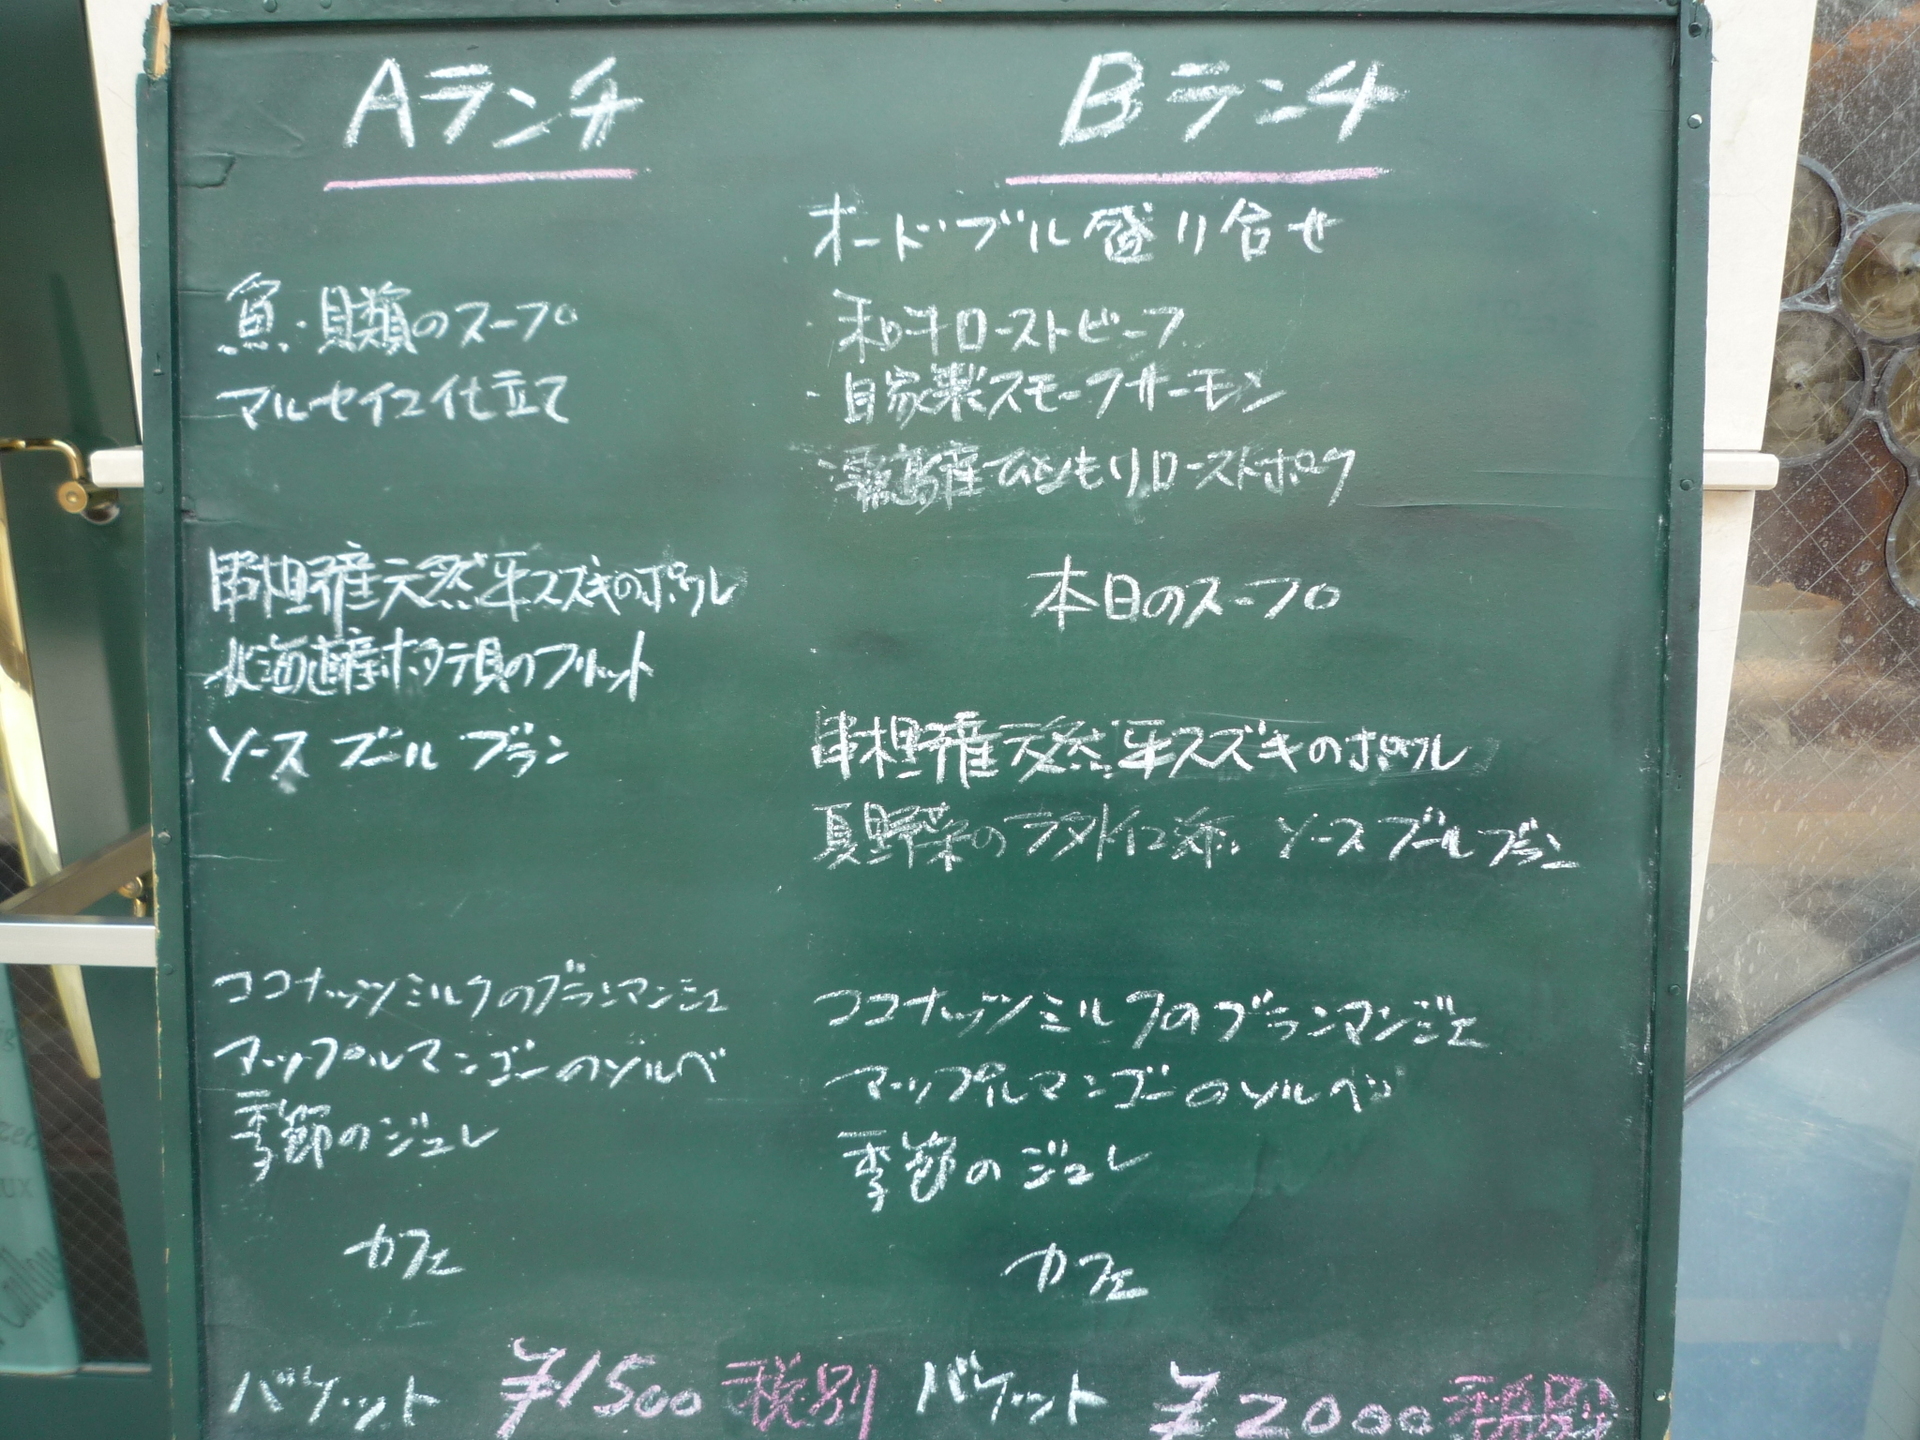 Aランチ
魚・貝類のスープ
マルセイユ仕立て
串木野産天然平スズキのポワレ
北海道産ホタテ貝のフリット
ソース ブール ブラン
ココナッツミルクのブランマンジェ
アップルマンゴーのソルベ
季節のジュレ
カフェ
バケット ¥1500 税別
Bランチ
オードブル盛り合せ
・和牛ローストビーフ
・自家製スモークサーモン
・霧島産 ローストポーク
本日のスープ
串木野産天然平スズキのポワレ
夏野菜のラタトイユ添え ソース ブール ブラン
ココナッツミルクのブランマンジェ
アップルマンゴーのソルベ
季節のジュレ
カフェ
バケット ¥2000 税別